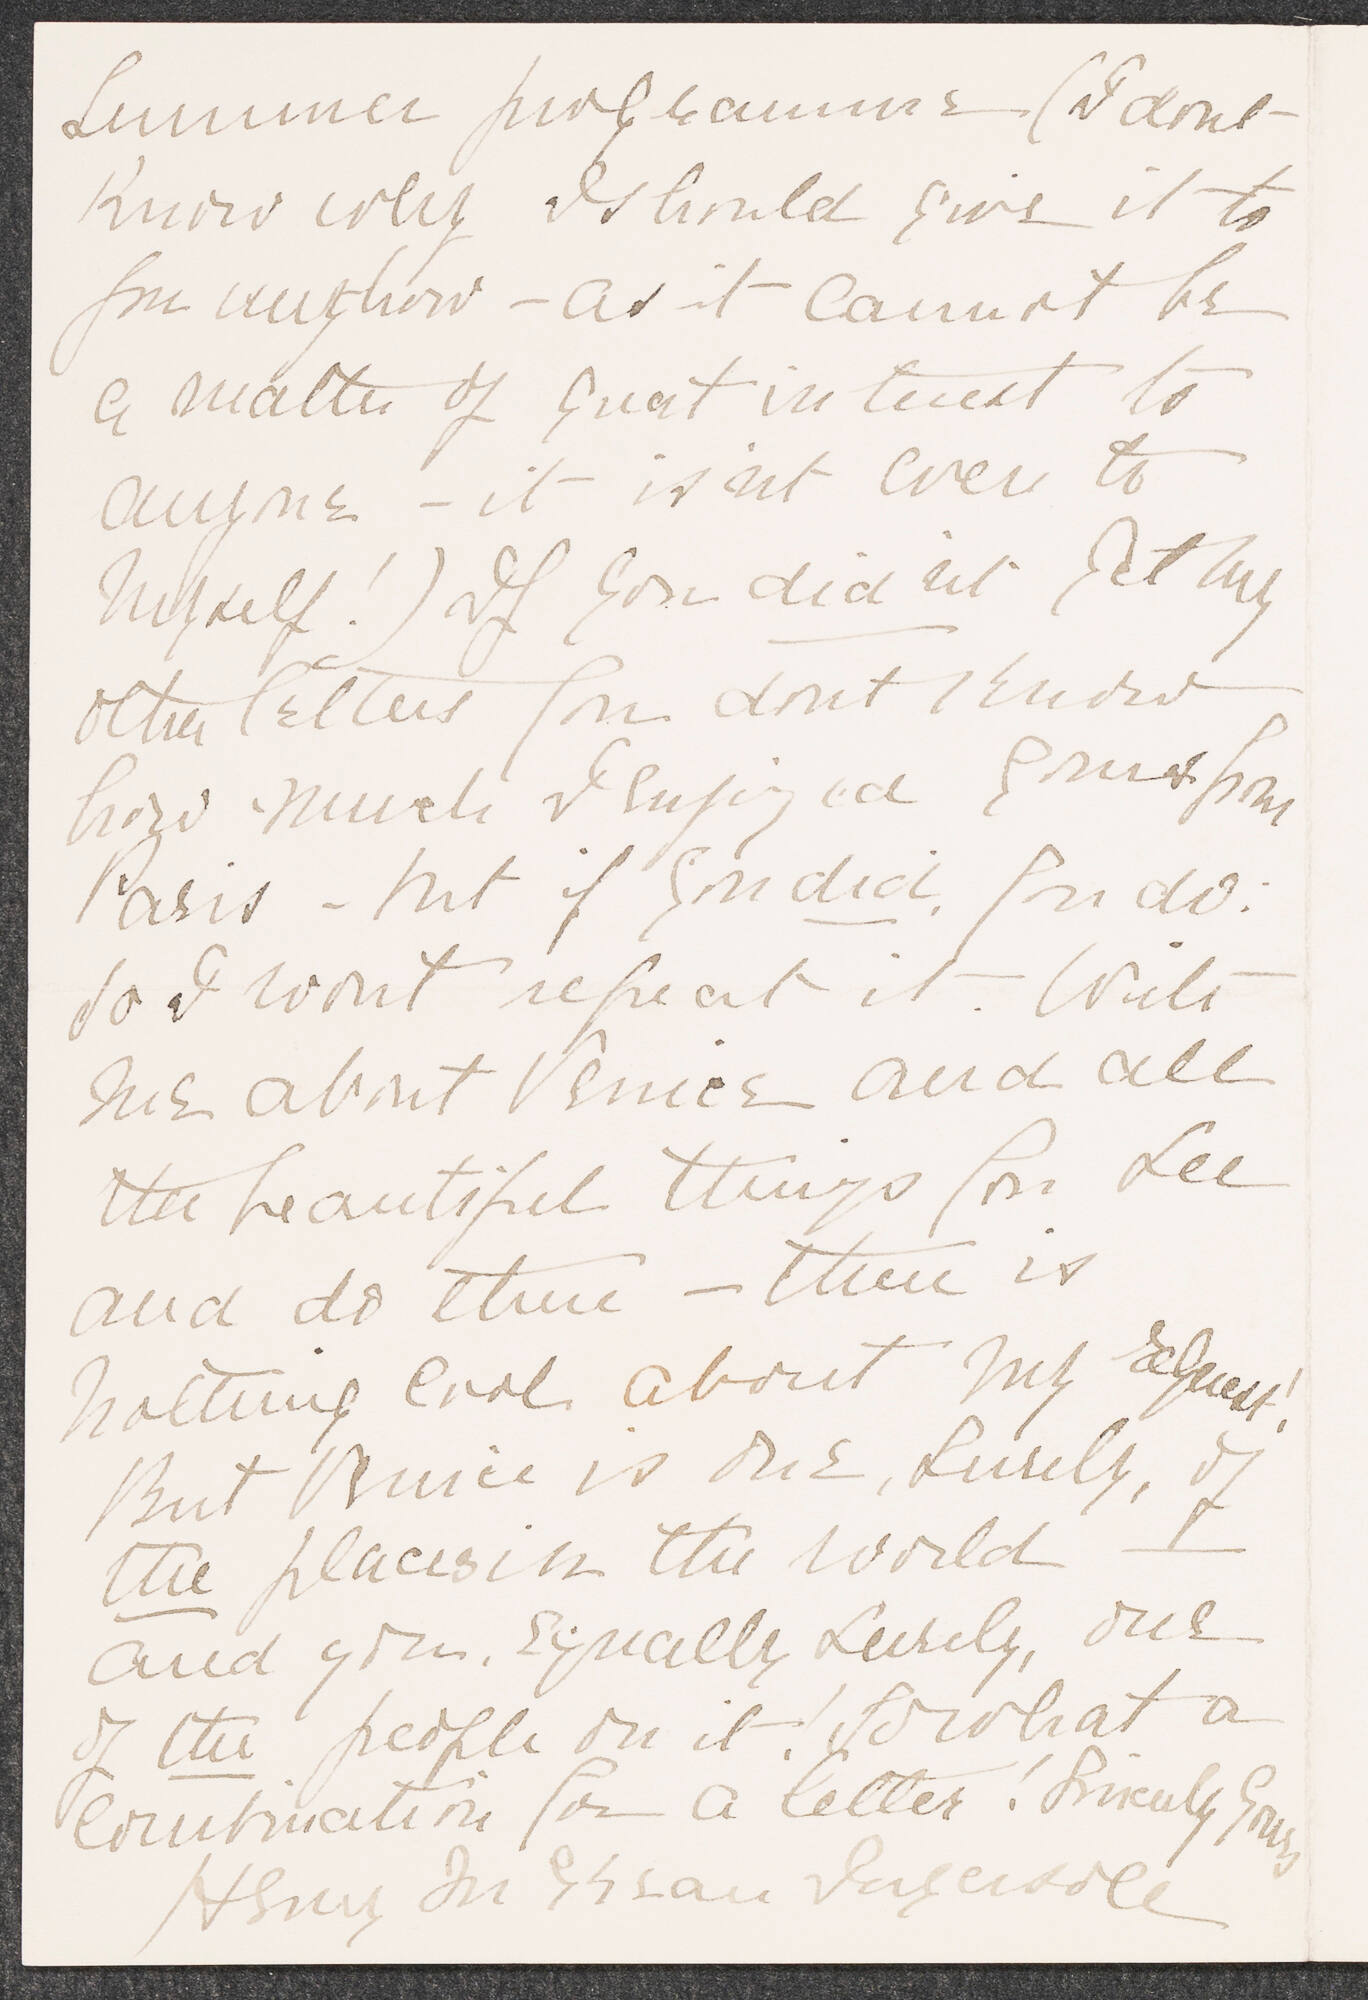 Summer programme (I dont
Know why I should give it to
you anyhow - as it cannot be
a matter of great interest to
anyone - it is'nt even to
Myself!) If you did'nt get my
other letters you dont know
how much I enjoyed yours from
Paris - but if you did, you do:
so I wont repeat it. Write
me about Venice and all
the beautiful things you see
and do there - there is
nothing cool about my request!
But Venice is one, surely, of
the places in the world -
and you, equally surely, one
of the people on it! So what a
combination for a letter! Sincerely yours
Henry McGrean Ingersoll